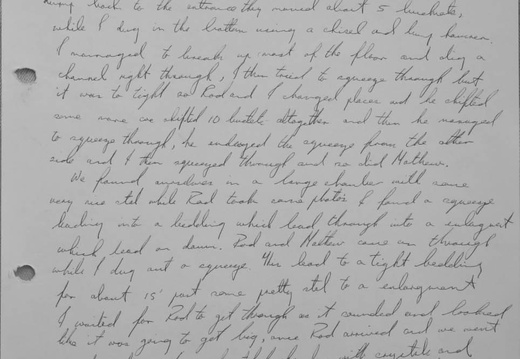 back to the entrance they moved about 5 buckets,
while I dug in the bottom using a chisel and lump hammer.
I mannaged to break up most of the floor and dig a
channel right through, I then tried to squeeze through but
it was to tight so Rod and I changed places and he shifted
some more we shifted 10 buckets altogether and then he managed
to squeeze through, he enlarged the squeeze from the other
side and I then squeezed through and so did Mathew.
We found ourselves in a large chamber with some
very nice stal while Rod took some photos I found a squeeze
leading into a bedding which lead through into a enlargment
which lead on down. Rod and Mathew came on through
while I dug out a squeeze. This lead to a tight bedding
for about 15' past some pretty stal to a enlargment
I waited for Rod to get through as it sounded and looked
like it was going to get big, once Rod arrived and we went
with crystals and